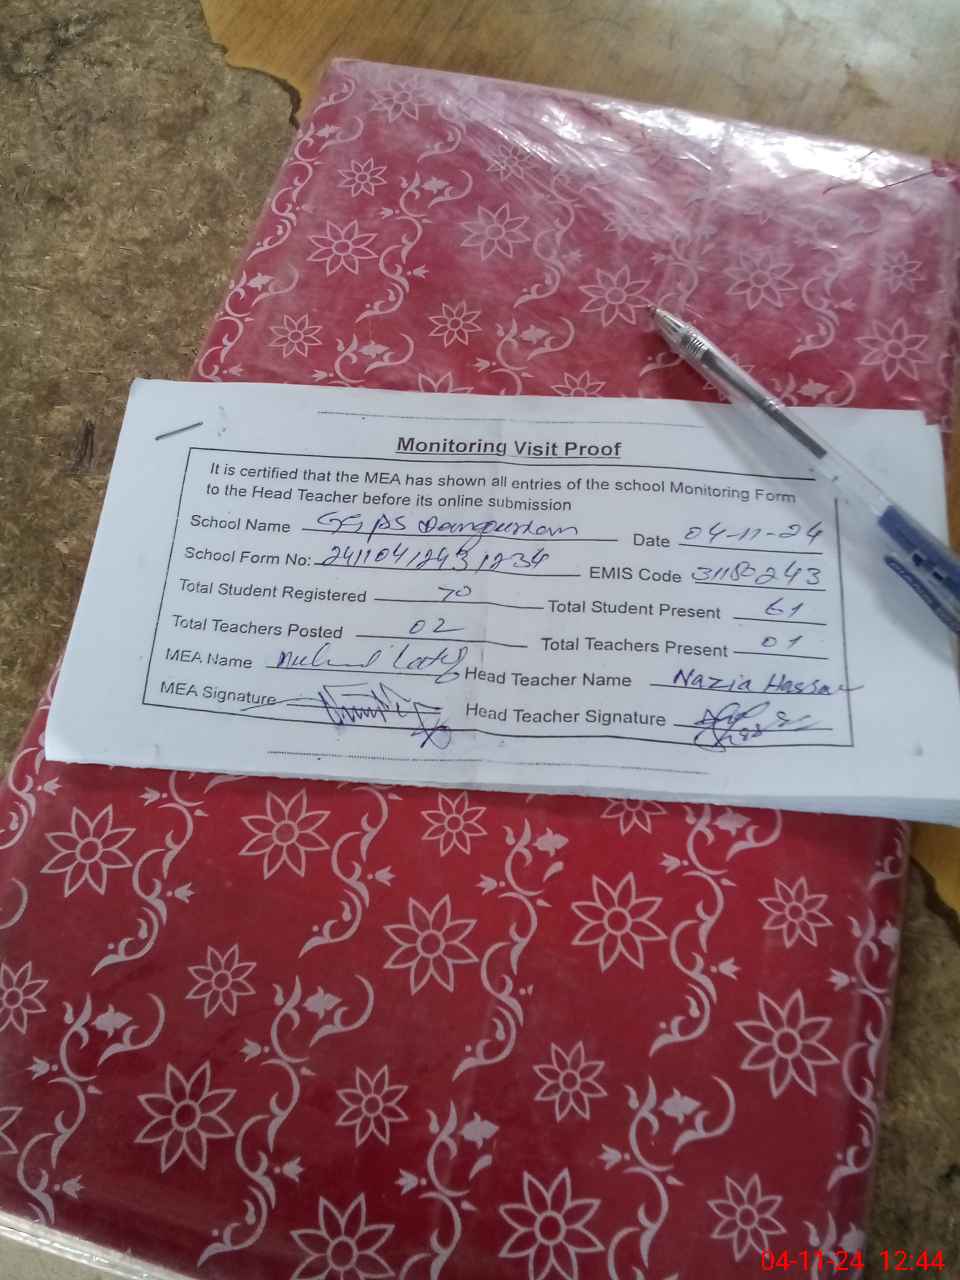 Monitoring Visit Proof
It is certified that the MEA has shown all entries of the school Monitoring Form
to the Head Teacher before its online submission
School Name GGPS Date 04-11-24
School Form No: 24110412431234 EMIS Code 31180243
Total Student Registered 70 Total Student Present 61
Total Teachers Posted 02 Total Teachers Present 01
MEA Name Head Teacher Name Nazia Hassan
MEA Signature Head Teacher Signature
04-11-24 12:44